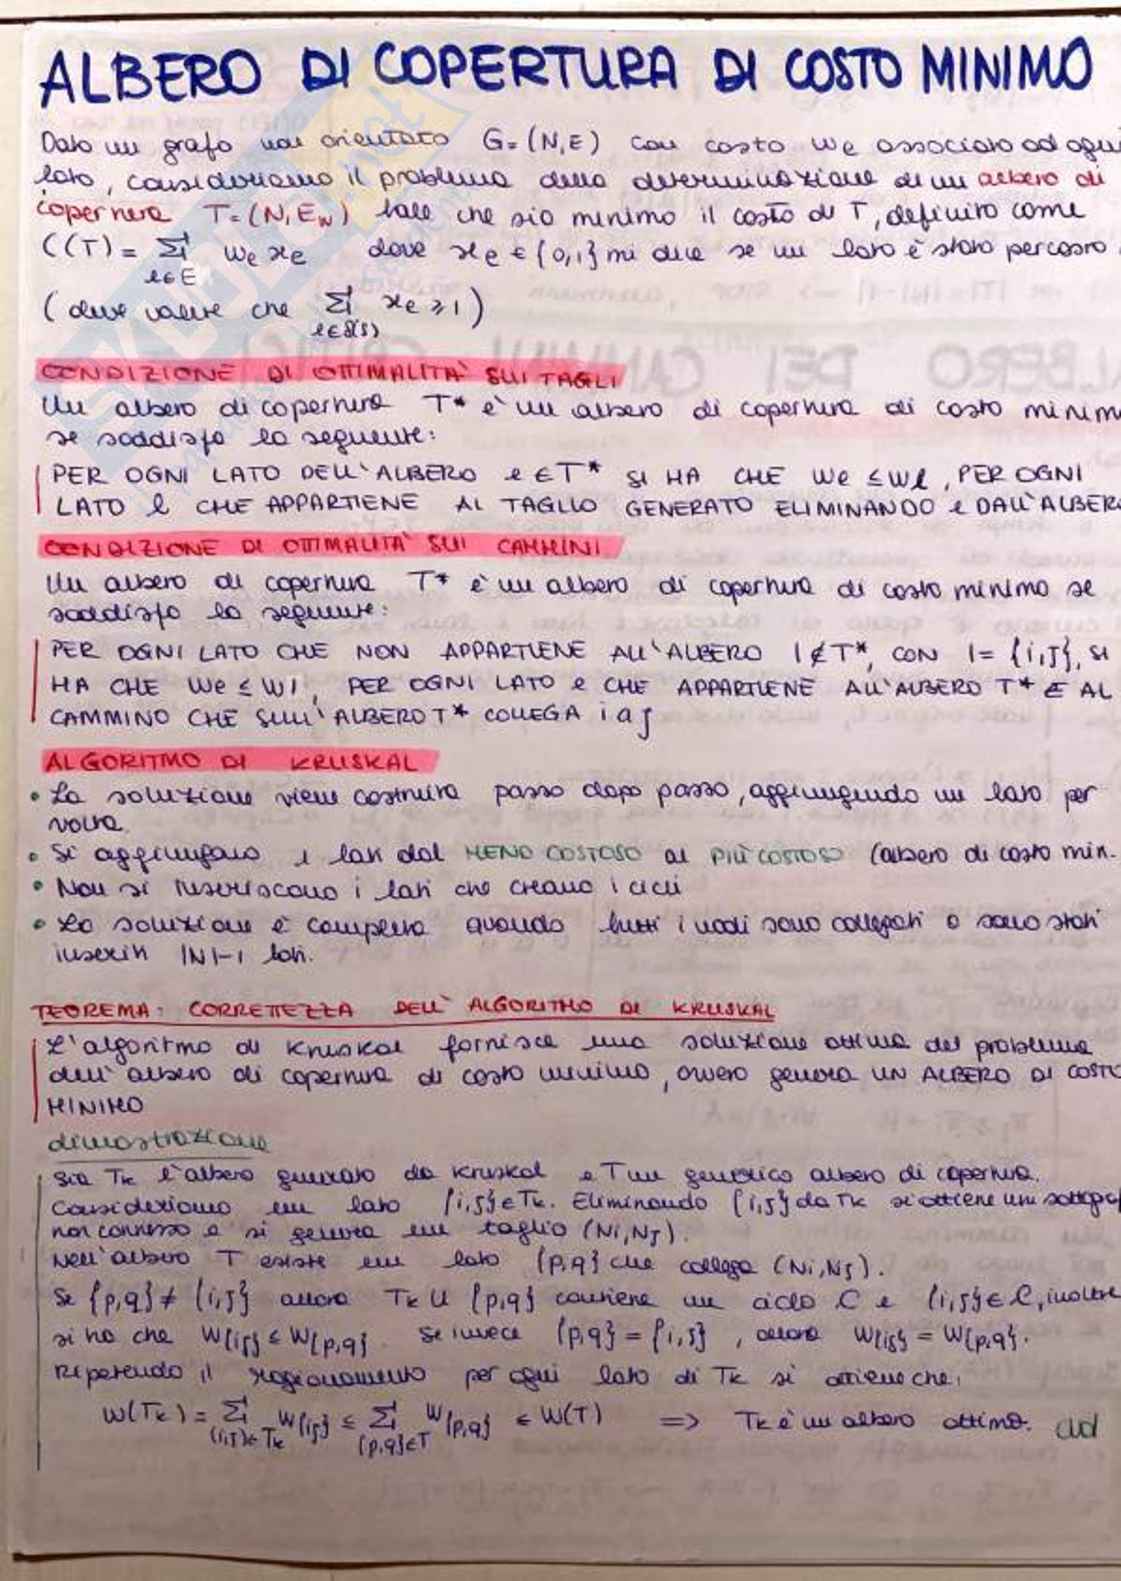 ALBERO DI COPERTURA DI COSTO MINIMO
Dato un grafo non orientato G=(N,E) con costo we associato ad ogni
lato, consideriamo il problema della determinazione di un albero di
copertura T=(N,E_N) tale che sia minimo il costo di T, definito come
C(T) = Σ we xe dove xe ∈ {0,1} mi dice se un lato è stato percorso
e∈E
(deve valere che Σ xe ≥ 1)
e∈δ(S)
CONDIZIONE DI OTTIMALITA' SUI TAGLI
Un albero di copertura T* è un albero di copertura di costo minim
se soddisfa la seguente:
PER OGNI LATO DELL'ALBERO e ∈ T* SI HA CHE we ≤ wl, PER OGNI
LATO l CHE APPARTIENE AL TAGLIO GENERATO ELIMINANDO e DALL'ALBERO
CONDIZIONE DI OTTIMALITA' SUI CAMMINI
Un albero di copertura T* è un albero di copertura di costo minimo se
soddisfa la seguente:
PER OGNI LATO CHE NON APPARTIENE ALL'ALBERO l ∉ T*, CON l = {i,j}, SI
HA CHE we ≤ wl, PER OGNI LATO e CHE APPARTIENE ALL'ALBERO T* E AL
CAMMINO CHE SULL'ALBERO T* COLLEGA i a j
ALGORITMO DI KRUSKAL
• La soluzione viene costruita passo dopo passo, aggiungendo un lato per
volta.
• Si aggiungono i lati dal MENO COSTOSO al PIÙ COSTOSO (albero di costo min.
• Non si inseriscono i lati che creano i cicli
• La soluzione è completa quando tutti i nodi sono collegati o sono stati
inseriti |N|-1 lati.
TEOREMA: CORRETTEZZA DELL'ALGORITMO DI KRUSKAL
L'algoritmo di Kruskal fornisce una soluzione ottima del problema
dell'albero di copertura di costo minimo, ovvero genera UN ALBERO DI COSTO
MINIMO
dimostrazione
Sia Tk l'albero generato da Kruskal e T un generico albero di copertura.
Consideriamo un lato {i,j} ∈ Tk. Eliminando {i,j} da Tk si ottiene un sottogra
non connesso e si genera un taglio (Ni,Nj).
Nell'albero T esiste un lato {p,q} che collega (Ni,Nj).
Se {p,q} ≠ {i,j} allora Tk U {p,q} contiene un ciclo C e {i,j} ∈ C, inoltre
si ha che W{i,j} ≤ W{p,q}. Se invece {p,q} = {i,j}, allora W{i,j} = W{p,q}.
Ripetendo il ragionamento per ogni lato di Tk si ottiene che:
W(Tk) = Σ W{i,j} ≤ Σ W{p,q} ≤ W(T) => Tk è un albero ottimo. cvd
{i,j}∈Tk {p,q}∈T